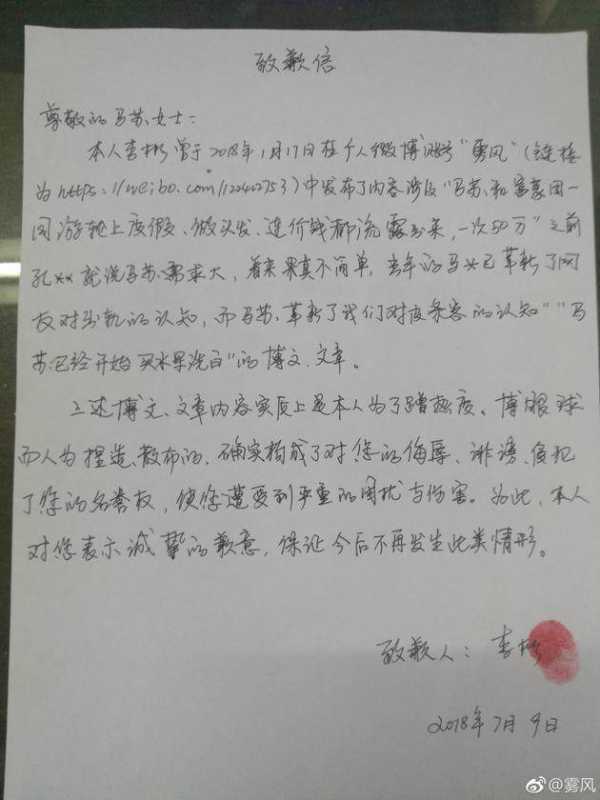 致歉信
尊敬的马苏女士：
本人李彬曾于2018年1月17日在个人微博账号"雾风"(链接
为https://weibo.com/122402753)中发布了内容涉及"马苏和富豪团一
同游轮上度假、做头发、连价钱都流露出来，一次50万""之前
孔××就说马苏需求大，看来果真不简单，当年的马××已革新了网
友对出轨的认知，而马苏革新了我们对皮条客的认知""马
苏已经开始买水军洗白"的博文、文章。
上述博文、文章内容实质上是本人为了蹭热度、博眼球
而人为捏造、散布的，确实构成了对您的侮辱、诽谤，侵犯
了您的名誉权，使您遭受到严重的困扰与伤害。为此，本人
对您表示诚挚的歉意，保证今后不再发生此类情形。
致歉人：李彬
2018年7月9日
@雾风